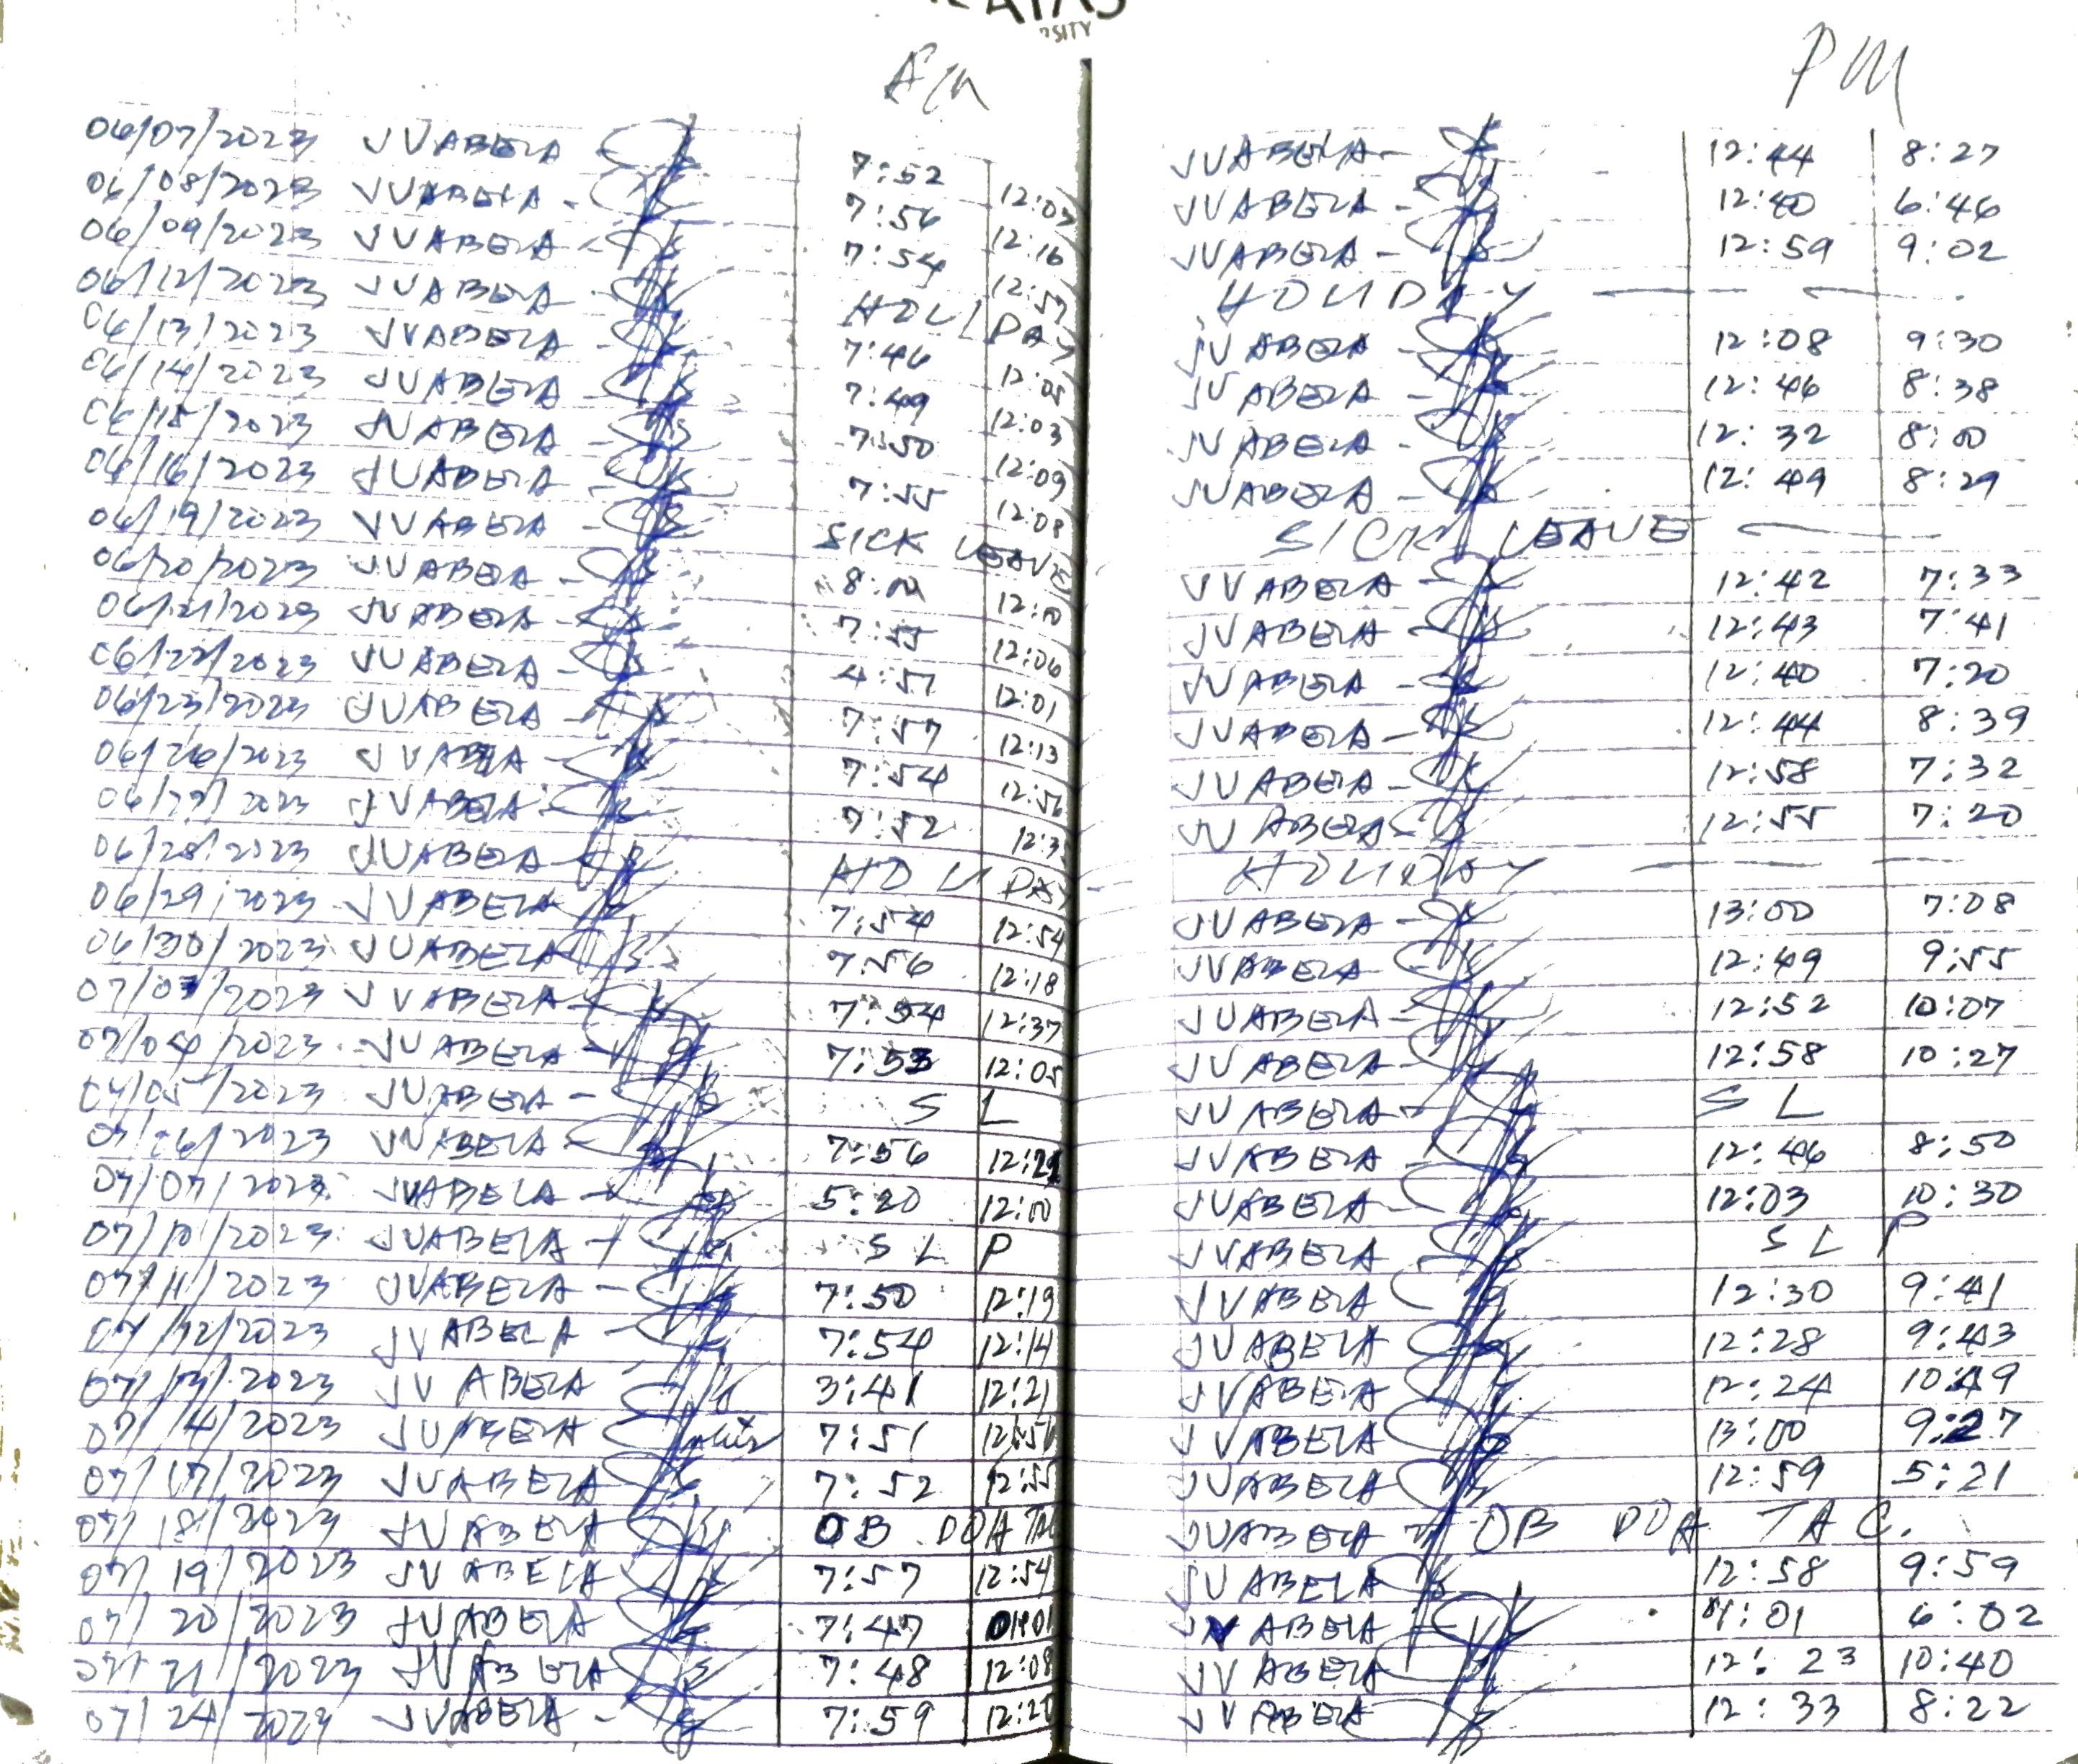 SITY
Am
PM
06/07/2023 JVABELA 7:52 12:07 JVABELA - 12:44 8:27
06/08/2023 JVABELA - 7:56 12:16 JVABELA - 12:40 6:46
06/09/2023 JVABELA - 7:54 12:57 JVABELA - 12:59 9:02
06/12/2023 JVABELA - HOLIDAY HOLIDAY
06/13/2023 JVABELA - 7:46 12:05 JVABELA - 12:08 9:30
06/14/2023 JVABELA - 7:49 12:03 JVABELA - 12:46 8:38
06/15/2023 JVABELA - 7:50 12:09 JVABELA - 12:32 8:00
06/16/2023 JVABELA - 7:55 12:08 JVABELA - 12:49 8:29
06/19/2023 JVABELA - SICK LEAVE SICK LEAVE
06/20/2023 JVABELA - 8:00 12:00 JVABELA - 12:42 7:33
06/21/2023 JVABELA - 7:55 12:06 JVABELA - 12:43 7:41
06/22/2023 JVABELA - 4:57 12:01 JVABELA - 12:40 7:20
06/23/2023 JVABELA - 7:57 12:13 JVABELA - 12:44 8:39
06/26/2023 JVABELA - 7:54 12:56 JVABELA - 12:58 7:32
06/27/2023 JVABELA - 7:52 JVABELA - 12:55 7:20
06/28/2023 JVABELA - HOLIDAY HOLIDAY
06/29/2023 JVABELA 7:54 12:54 JVABELA - 13:00 7:08
06/30/2023 JVABELA 7:56 12:18 JVABELA - 12:49 9:55
07/03/2023 JVABELA - 7:54 12:37 JVABELA - 12:52 10:07
07/04/2023 JVABELA - 7:53 12:05 JVABELA - 12:58 10:27
07/05/2023 JVABELA - S L JVABELA - S L
07/06/2023 JVABELA - 7:56 JVABELA 12:46 8:50
07/07/2023 JVABELA - 5:20 12:00 JVABELA - 12:03 10:30
07/10/2023 JVABELA - S L P JVABELA S L P
07/11/2023 JVABELA - 7:50 12:19 JVABELA 12:30 9:41
07/12/2023 JVABELA - 7:54 12:14 JVABELA 12:28 9:43
07/13/2023 JV ABELA 3:41 12:21 JVABELA 12:24 10:49
07/14/2023 JVABELA 7:51 JVABELA 13:00 9:27
07/17/2023 JVABELA 7:52 12:55 JVABELA 12:59 5:21
07/18/2023 JVABELA OB DOA TAC JVABELA OB DOA TAC.
07/19/2023 JVABELA 7:57 12:54 JVABELA 12:58 9:59
07/20/2023 JVABELA 7:47 JVABELA 6:02
07/21/2023 JVABELA 7:48 12:08 JVABELA 12:23 10:40
07/24/2023 JVABELA - 7:59 JVABELA 12:33 8:22